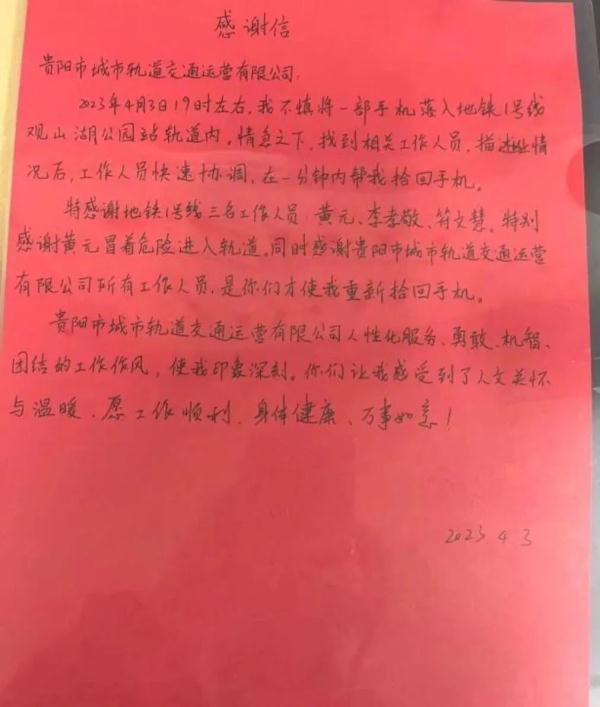 感谢信
贵阳市城市轨道交通运营有限公司:
2023年4月3日19时左右,我不慎将一部手机落入地铁1号线
观山湖公园站轨道内。情急之下,找到相关工作人员,描述情
况后,工作人员快速协调,在一分钟内帮我拾回手机。
特感谢地铁1号线三名工作人员:黄元、李孝敬、符文慧。特别
感谢黄元冒着危险进入轨道。同时感谢贵阳市城市轨道交通运营
有限公司所有工作人员,是你们才使我重新拾回手机。
贵阳市城市轨道交通运营有限公司人性化服务、勇敢、机智、
团结的工作作风,使我印象深刻。你们让我感受到了人文关怀
与温暖、愿工作顺利、身体健康、万事如意!
2023 4 3